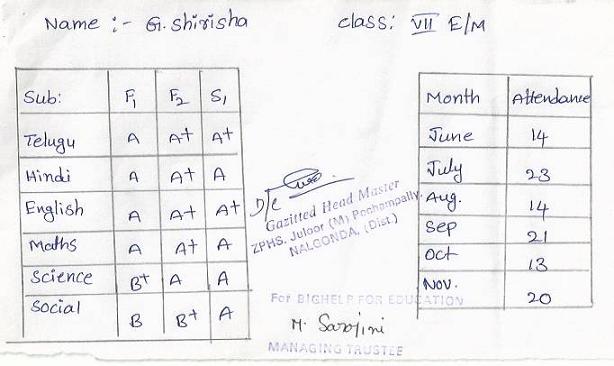 Name :- G. Shirisha class: VII E/M
Sub: F1 F2 S1
Telugu A A+ A+
Hindi A A+ A
English A A+ A+
Maths A A+ A
Science B+ A A
Social B B+ A
Month Attendance
June 14
July 23
Aug. 14
Sep 21
Oct 13
Nov. 20
Gazitted Head Master
ZPHS. Juloor (M) Pochampally.
NALGONDA, (Dist.)
For BIGHELP FOR EDUCATION
M. Sarojini
MANAGING TRUSTEE